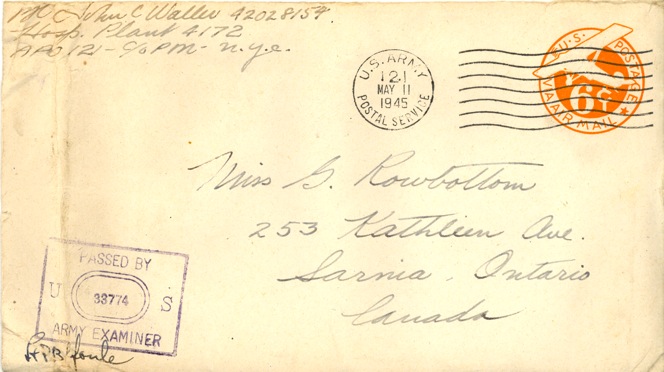 Pfc John C Waller 42028154
Hosp. Plant 4172
APO 121 - c/o PM - N.Y.C.
U.S. ARMY
121
MAY 11
1945
POSTAL SERVICE
U.S. POSTAGE
6¢
VIA AIR MAIL
Miss G. Rowbottom
253 Kathleen Ave.
Sarnia, Ontario
Canada
PASSED BY
U 33774 S
ARMY EXAMINER